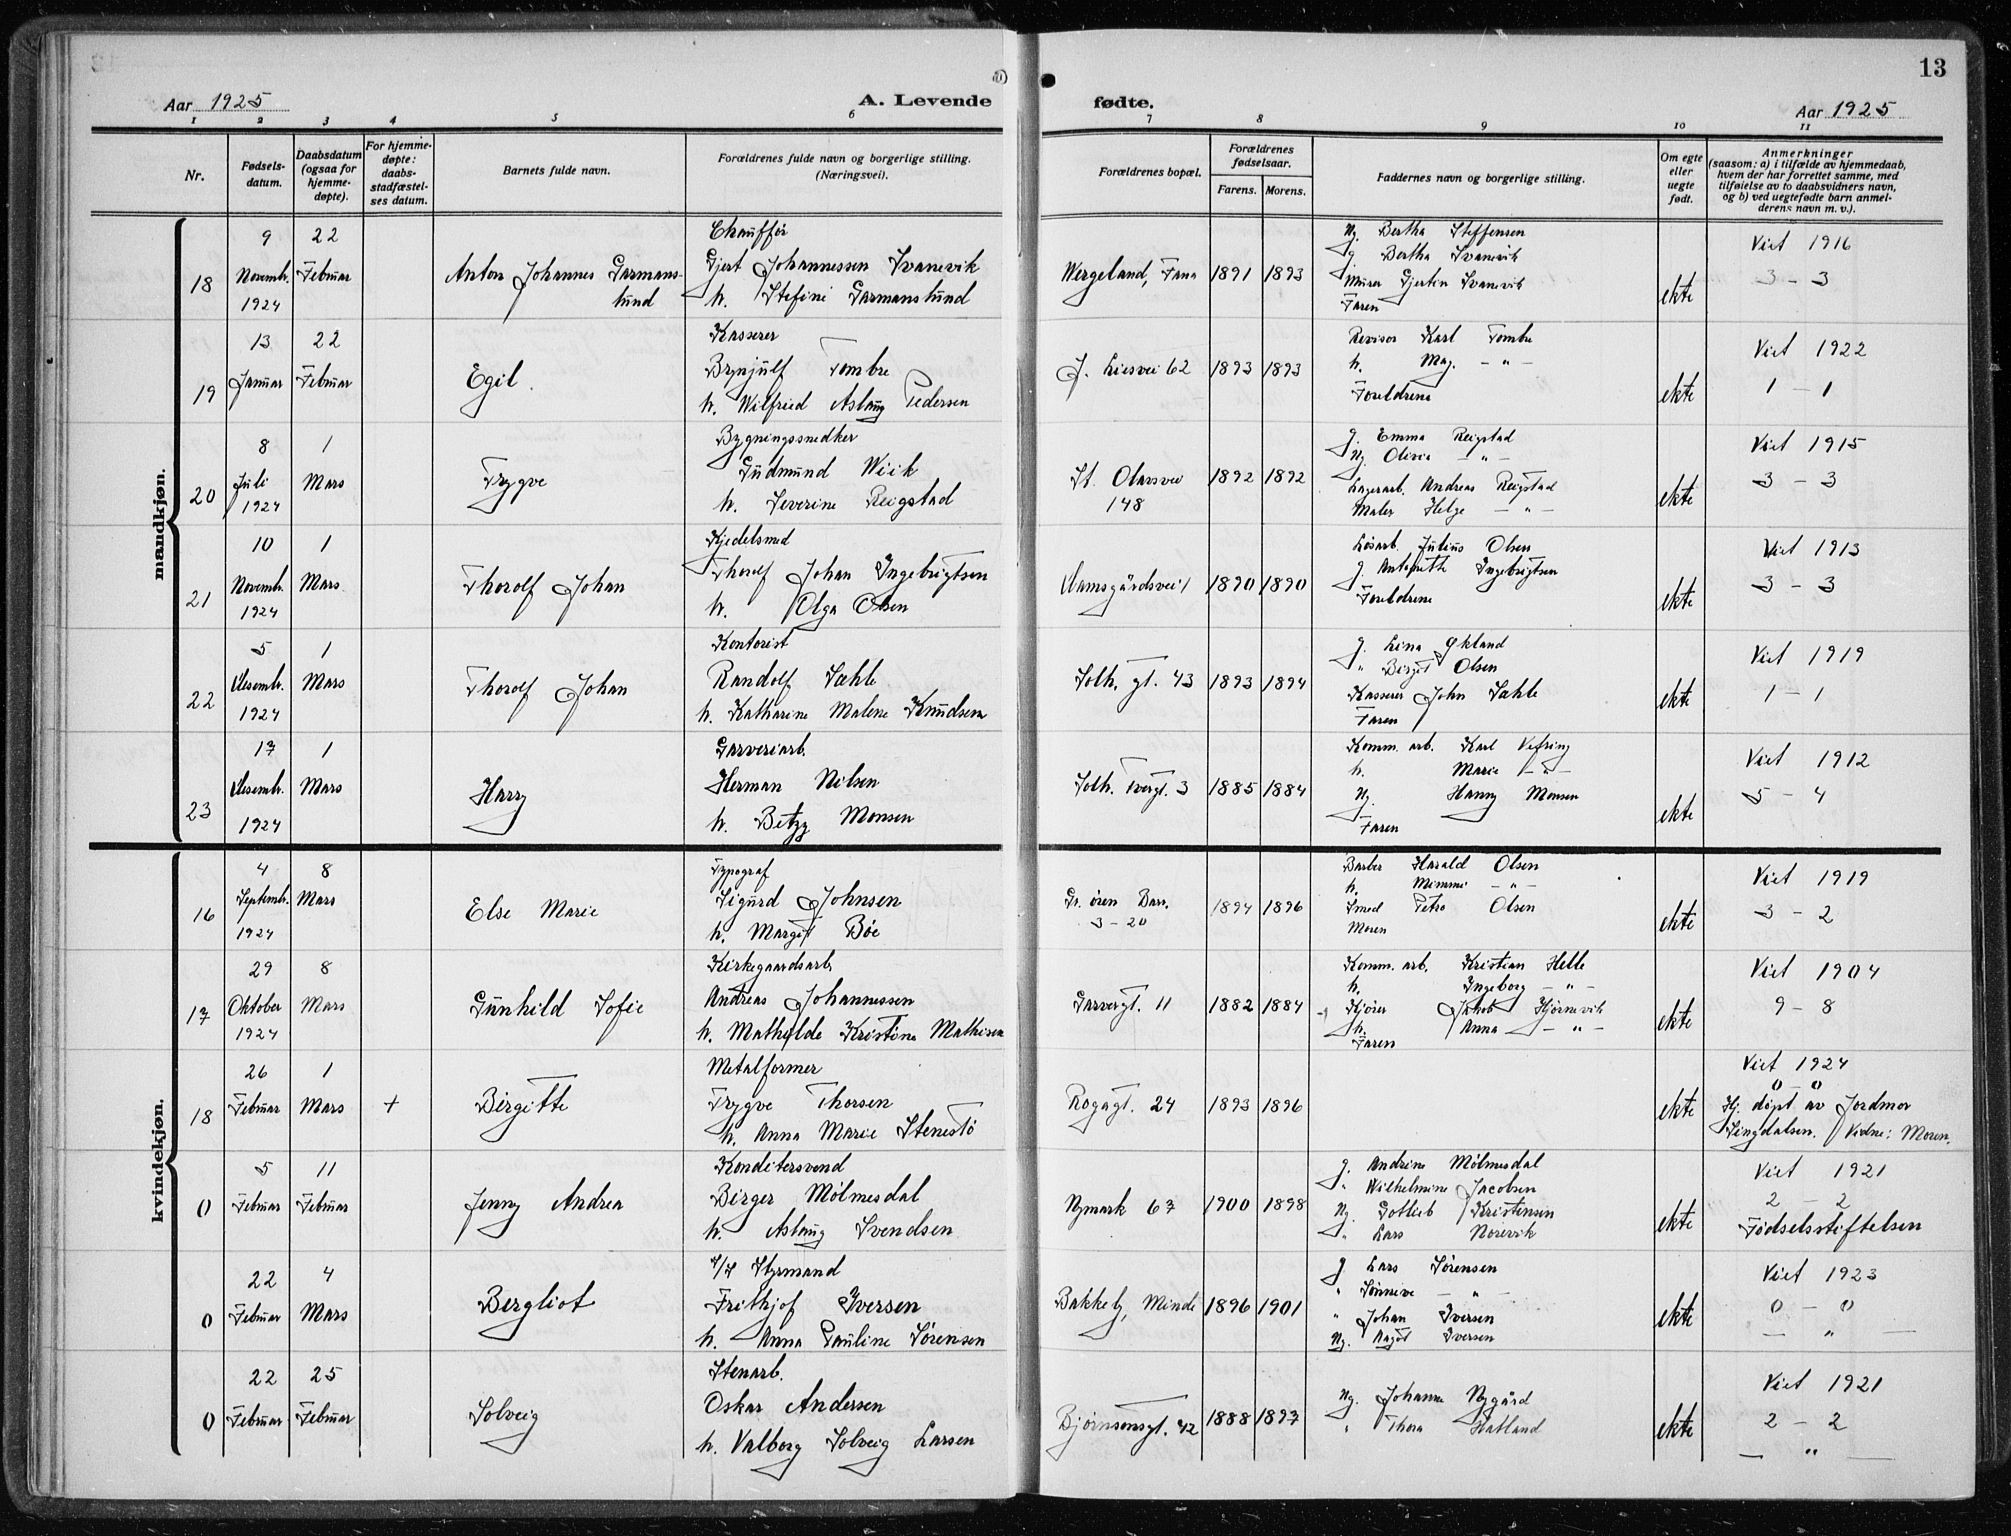 13
Aar 1925
A. Levende
fødte.
Aar 1925
1 2 3 4 5 6 7 8 9 10 11
Nr.
Fødsels-
datum.
Daabsdatum
(ogsaa for
hjemme-
døpte).
For hjemme-
døpte:
daabs-
stadfæstel-
ses datum.
Barnets fulde navn.
Forældrenes fulde navn og borgerlige stilling.
(Næringsvei).
Forældrenes bopæl.
Forældrenes
fødselsaar.
Farens. Morens.
Faddernes navn og borgerlige stilling.
Om egte
eller
uegte
født.
Anmerkninger
(saasom: a) i tilfælde av hjemmedaab,
hvem der har forrettet samme, med
tilføielse av to daabsvidners navn,
og b) ved uegtefødte barn anmel-
derens navn m. v.).
mandkjøn.
18
9
Novembr.
1924
22
Februar
Anton Johannes Garmans-
lund
Chauffør
Gjert Johannessen Svanevik
h. Stefine Garmanslund
Wergeland, Fana
1891 1893
Ug. Bertha Steffensen
g. Bertha Svanevik
Murer Gjertin Svanevik
Faren
ekte
Viet 1916
3 - 3
19
13
Januar
22
Februar
Egil.
Kasserer
Brynjulf Tombre
h. Wilfried Aslaug Pedersen
J. Liesvei 62
1893 1893
Revisor Karl Tombre
h. Mag. - " -
Foreldrene
ekte
Viet 1922
1 - 1
20
8
Juli
1924
1
Mars
Trygve
Bygningssnedker
Gudmund Wiik
h. Severine Reigstad
St. Olavsvei
148
1892 1892
g. Emma Reigstad
Ug. Olivia - " -
Lagerarb. Andreas Reigstad
Maler Helge - " -
ekte
Viet 1915
3 - 3
21
10
Novembr.
1924
1
Mars
Thorolf Johan
Kjedelsmed
Thorolf Johan Ingebrigtsen
h. Olga Olsen
1890 1890
Løsarb. Julius Olsen
g. Ingebrigtsen
Foreldrene
ekte
Viet 1913
3 - 3
22
5
Desembr.
1924
1
Mars
Thorolf Johan
Kontorist
Randolf Sæhle
h. Katharine Malene Knudsen
Solh. gt. 43
1893 1894
g. Lina Økland
" Birgit Olsen
Kasserer John Sæhle
Faren
ekte
Viet 1919
1 - 1
23
17
Desembr.
1924
1
Mars
Harry
Garveriarb.
Herman Nilsen
h. Betzy Monsen
Solh. Tvergt. 3
1885 1884
Komm. arb. Karl Vefring
h. Marie - " -
Ug. Hanny Monsen
Faren
ekte
Viet 1912
5 - 4
kvindekjøn.
16
4
Septembr.
1924
8
Mars
Else Marie
Typograf
Sigurd Johnsen
h. Margit Bøe
Gr. ören Barr.
3-20
1894 1896
Barber Harald Olsen
h. Mimmi - " -
Smed Petro Olsen
Moren
ekte
Viet 1919
3 - 2
17
29
Oktober
1924
8
Mars
Gunhild Sofie
Kirkegaardsarb.
Andreas Johannessen
h. Mathilde Kristine Mathisen
Garvergt. 11
1882 1884
Komm. arb. Kristian Helle
h. Ingeborg - " -
Kjører Jakob Hjørnevik
h. Anna - " -
Faren
ekte
Viet 1904
9 - 8
18
26
Februar
1
Mars
+
Birgitte
Metalformer
Trygve Thorsen
h. Anna Marie Stenestø
Rogagt. 24
1893 1896
ekte
Viet 1924
0 - 0
Hj. døpt av Jordmor
Singdalsen. Vidne: Moren.
0
5
Februar
11
Februar
Jenny Andrea
Konditersvend
Birger Mølmesdal
h. Aslaug Svendsen
Nymark 67
1900 1898
g. Andrine Mølmesdal
" Wilhelmine Jacobsen
Ug. Gotlieb Kristensen
" Lars Norevik
ekte
Viet 1921
2 - 2
Fødselsstiftelsen
0
22
Februar
4
Mars
Bergliot
Styrmand
Frithjof Iversen
h. Anna Pauline Sørensen
Bakkeb, Minde
1896 1901
g. Lars Sørensen
" Sønneve - " -
" Johan Iversen
Ug. Aagot Iversen
ekte
Viet 1923
0 - 0
— " —
0
22
Februar
25
Februar
Solveig
Stenarb.
Oskar Andersen
h. Valborg Solveig Larsen
Bjørnsonsgt. 42
1888 1897
Ug. Johanne Nygård
" Thora Hatland
ekte
Viet 1921
2 - 2
— " —